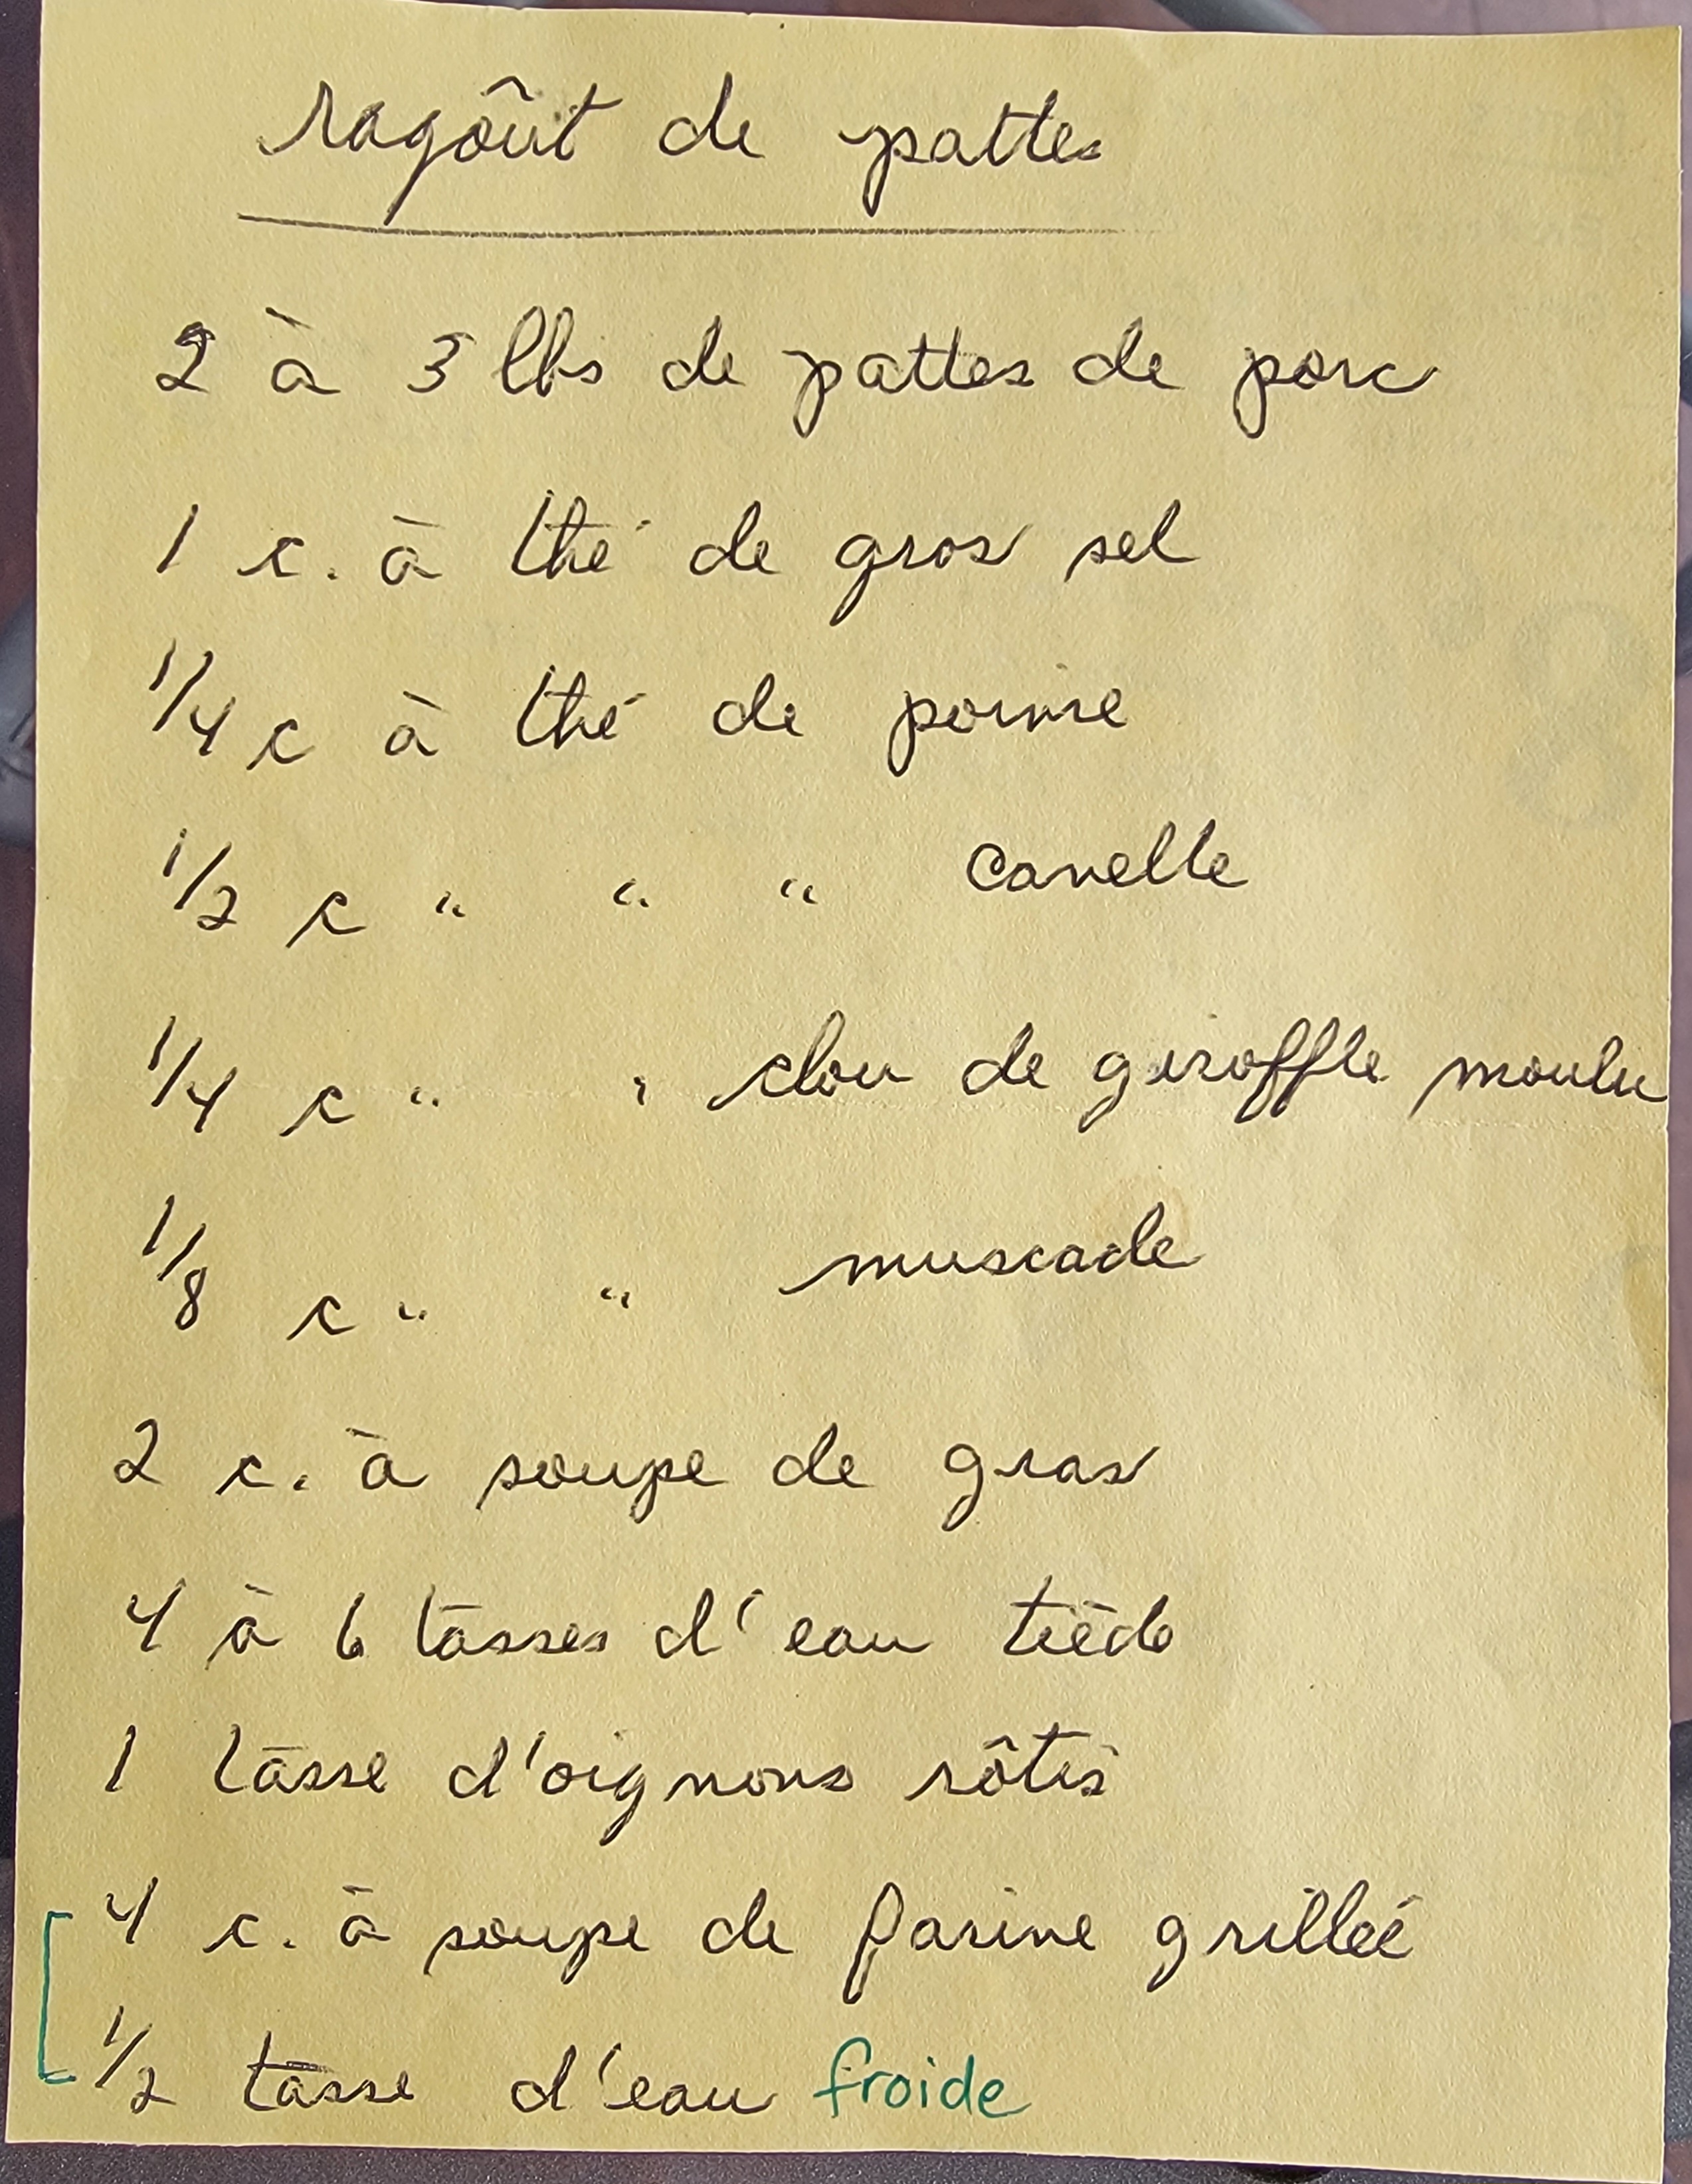 ragoût de pattes
2 à 3 lbs de pattes de porc
1 c. à thé de gros sel
1/4 c à thé de poivre
1/2 c " " " canelle
1/4 c " " clou de giroffle moulu
1/8 c " " muscade
2 c. à soupe de gras
4 à 6 tasses d'eau tiède
1 tasse d'oignons rôtis
4 c. à soupe de farine grillée
1/2 tasse d'eau froide